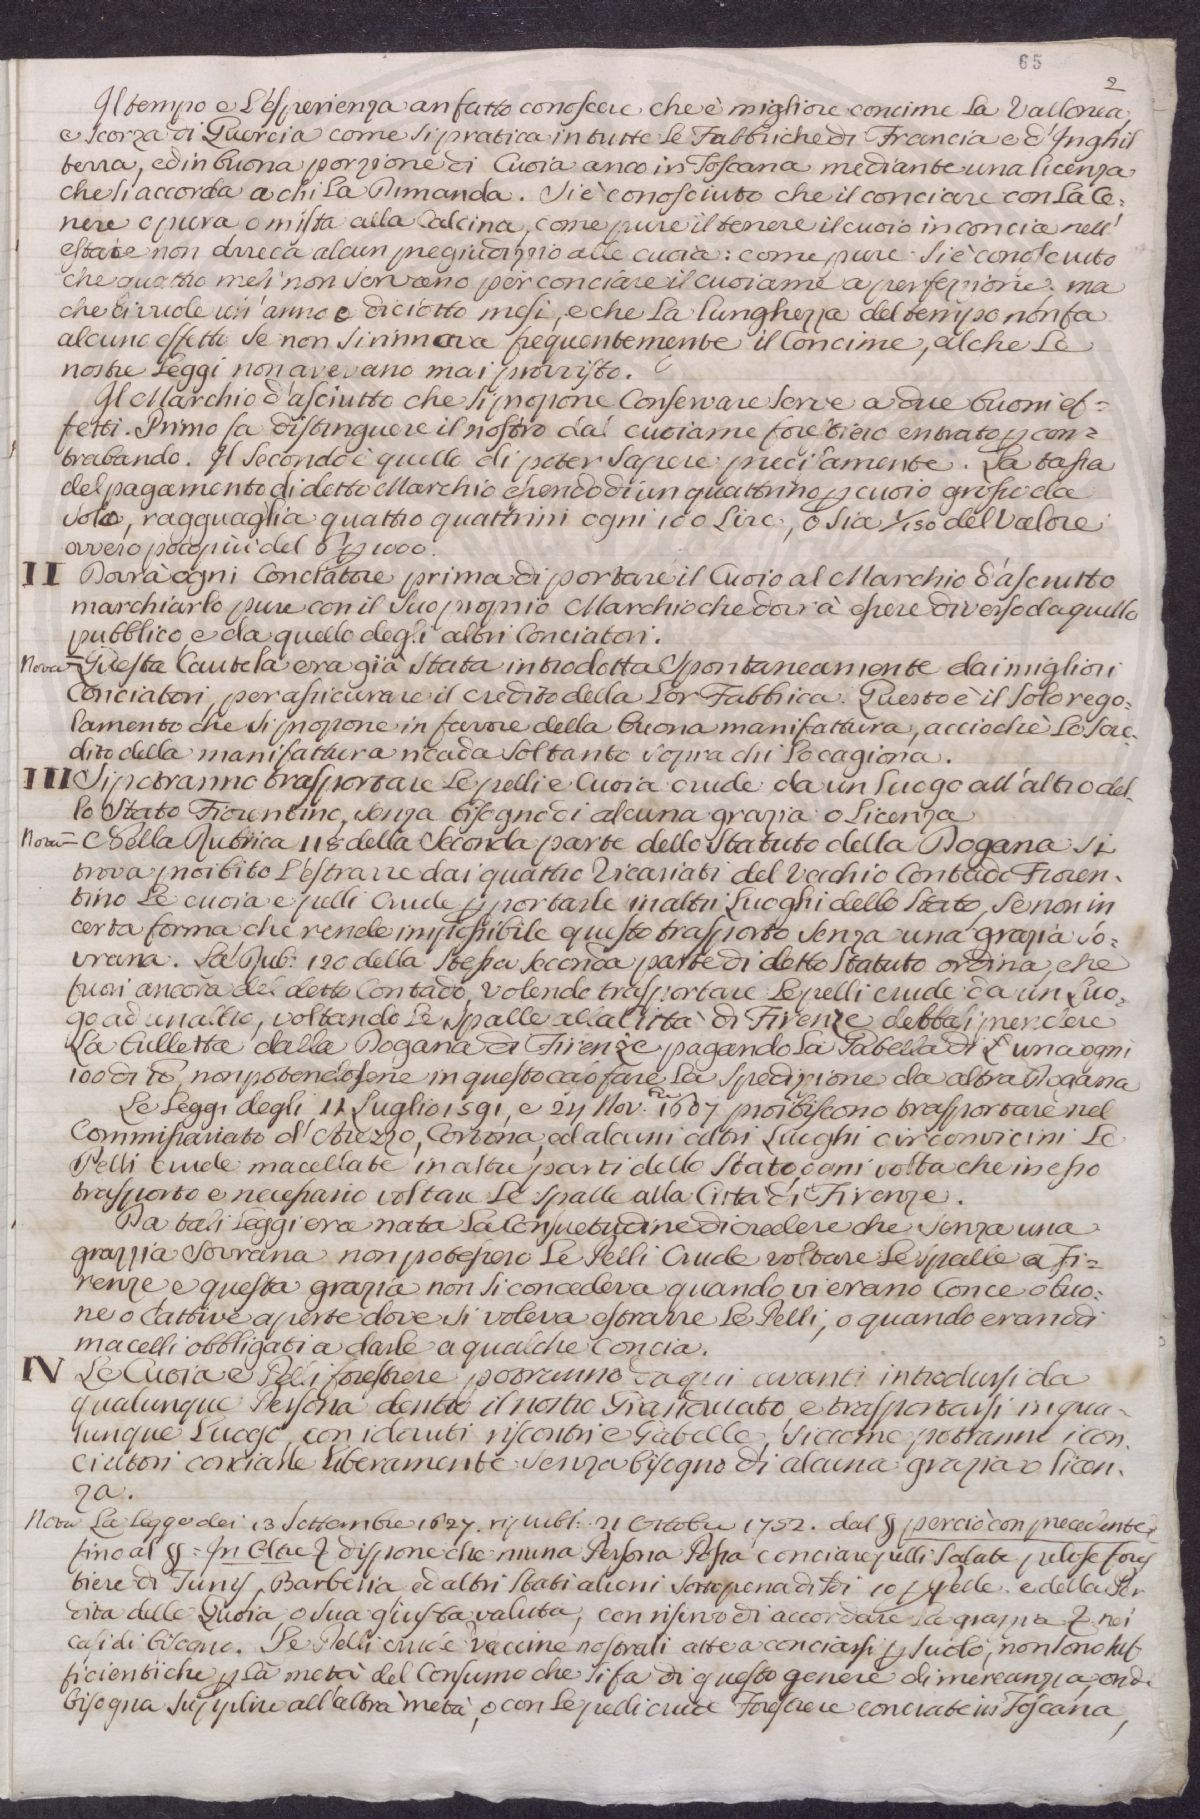 65
2
Il tempo e L'esperienza an fatto conoscere che è migliore concime La Vallonea,
e scorza di Quercia come si pratica in tutte Le Fabbriche di Francia e d'Inghil
terra, ed in buona porzione di Cuoia anco in Toscana mediante una licenza
che si accorda a chi La Dimanda. Si è conosciuto che il conciare con La Ce:
nere o pura o mista alla Calcina, come pure il tenere il cuoio in concia nell'
estate non arreca alcun pregiudizzio alle cuoia: come pure si è conosciuto
che quattro mesi non servano per conciare il cuoiame a perfezione: ma
che ci vuole un'anno e diciotto mesi, e che La Lunghezza del tempo non fa
alcuno effetto se non si rinnova frequentemente il Concime, al che Le
nostre Leggi non avevano mai provvisto.
Il Marchio d'asciutto che si propone Conservare serve a due buoni ef=
fetti. Primo fa distinguere il nostro dal cuoiame forestiero entrato p con=
trabando. Il Secondo è quello di poter sapere precisamente. La tassa
del pagamento di detto Marchio essendo di un quattrino p cuoio grosso da
suolo, ragguaglia quattro quattrini ogni 100 Lire, o sia 1/150 del Valore
ovvero poco più del 6 p 1000.
II Dovrà ogni Conciatore prima di portare il Cuoio al Marchio d'asciutto
marchiarlo pure con il suo proprio Marchio che dovrà essere diverso da quello
pubblico e da quello degli altri Conciatori.
Nova= Questa Cautela era già stata introdotta Spontaneamente dai migliori
Conciatori, per assicurare il credito della Lor Fabbrica. Questo è il solo rego:
lamento che si propone in favore della buona manifattura, acciochè Lo scre:
dito della manifattura ricada soltanto sopra chi Lo cagiona.
III Si potranno trasportare Le pelli e Cuoia crude da un Luogo all'altro del:
lo Stato Fiorentino, senza bisogno di alcuna grazia o Licenza
Nova= Della Rubrica 118 della Seconda parte dello Statuto della Dogana si
trova proibito L'estrarre dai quattro Vicariati del Vecchio Contado Fioren:
tino Le cuoia e pelli Crude p portarle in altri Luoghi dello Stato, se non in
certa forma che rende impossibile questo trasporto senza una grazia so:
vrana. La Rub: 120 della stessa seconda parte di detto Statuto ordina, che
fuori ancora del detto Contado, volendo trasportare Le pelli crude da un Luo:
go ad un altro, voltando Le Spalle alla Città di Firenze debbasi prendere
La bulletta dalla Dogana di Firenze pagando La Gabella di L una ogni
100 di to, non potendosene in questo caso fare La Spedizione da altra Dogana
Le Leggi degli 11 Luglio 1591, e 24 Nov.bre 1607 proibiscono trasportare nel
Commissariato d'Arezzo, Cortona, ed alcuni altri Luoghi circonvicini Le
Pelli Crude macellate in altre parti dello Stato ogni volta che in esso
trasporto e necessario voltare Le Spalle alla Città di Firenze.
Da tali Leggi era nata La Consuetudine di credere che senza una
grazzia Sovrana non potessero Le Pelli Crude voltare Le spalle a Fi=
renze e questa grazia non si concedeva quando vi erano Conce o buo:
ne o Cattive aperte dove si voleva estrarre Le Pelli, o quando erano di
macelli obbligati a darle a qualche Concia.
IV Le Cuoia e Pelli forestiere potranno da qui avanti introdursi da
qualunque Persona dentro il nostro Granducato, e trasportarsi in qua:
lunque Luogo, con i dovuti riscontri e Gabelle, siccome potranno i con:
ciatori conciarle Liberamente senza bisogno di alcuna grazia o Licen:
za.
Nova La Legge dei 13 Settembre 1627. ripubl: 21 Ottobre 1752. dal § perciò con precedente
fino al § = In Oltre dispone che niuna Persona Possa conciare pelli Salate pelose fores
tiere di Tunis, Barberia ed altri Stati alieni sotto pena di sdi 10 p pelle e della Per
dita delle Quoia o sua giusta valuta, con riservo di accordare La grazia nei
casi di bisogno. Le Pelli crude vaccine nostrali atte a conciarsi p suolo, non sono suf
ficienti che p La metà del Consumo che si fa di questo genere di mercanzia, onde
bisogna supplire all'altra metà, o con Le pelli crude Forestiere conciate in Toscana,